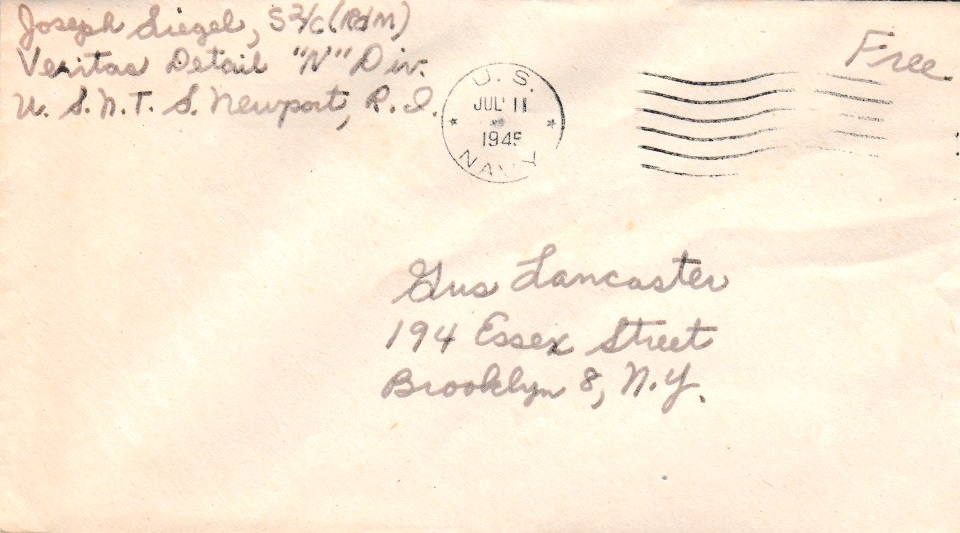 Joseph Siegel, S2/c (RdM)
Veritas Detail "N" Div.
U. S. N. T. S. Newport, R. I.
Free
U. S.
JUL 11
1945
NAVY
Gus Lancaster
194 Essex Street
Brooklyn 8, N.Y.